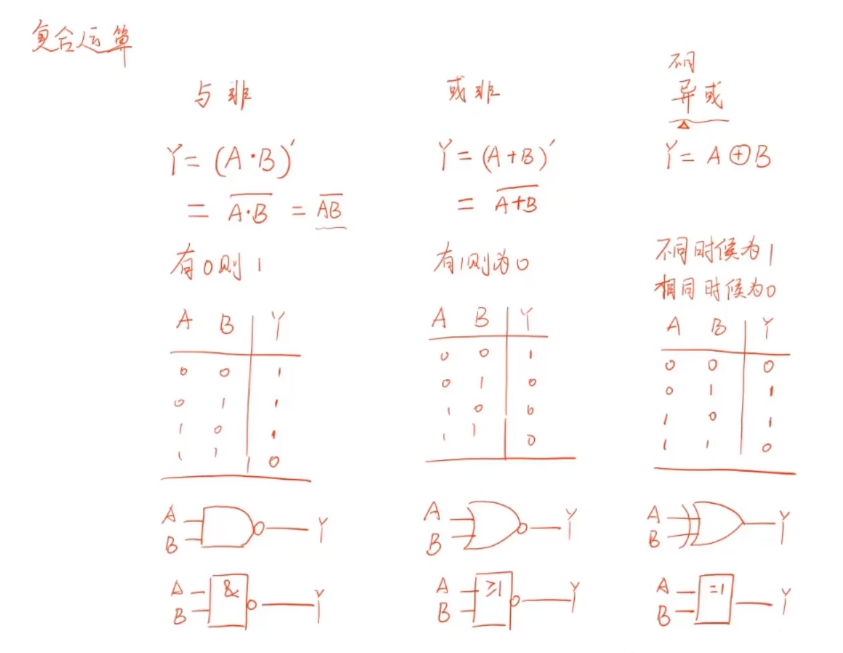 复合运算
与非
Y = (A·B)′
= \overline{A·B} = \overline{AB}
有0则1
A B Y
0 0 1
0 1 1
1 0 1
1 1 0
A
B
Y
A
B
&
Y
或非
Y = (A+B)′
= \overline{A+B}
有1则为0
A B Y
0 0 1
0 1 0
1 0 0
1 1 0
A
B
Y
A
B
≥1
Y
不同
异或
Y = A⊕B
不同时候为1
相同时候为0
A B Y
0 0 0
0 1 1
1 0 1
1 1 0
A
B
Y
A
B
=1
Y